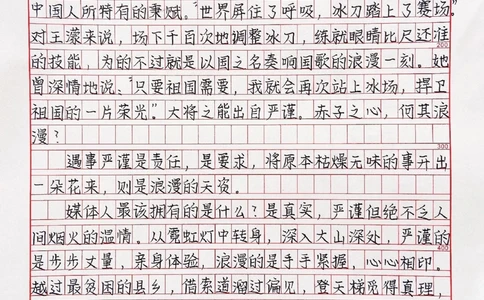 中国人所特有的秉赋。“世界屏住了呼吸，冰刀踏上了赛场。”
对王濛来说，场下千百次地调整冰刀，练就眼睛比尺还准
200
的技能，为的不过就是以国之名奏响国歌的浪漫一刻。她
曾深情地说：“只要祖国需要，我就会再次站上冰场，捍卫
祖国的一片荣光”。大将之能出自严谨。赤子之心，何其浪
漫？
300
遇事严谨是责任，是要求，将原本枯燥无味的事开出
一朵花来，则是浪漫的天资。
媒体人最该拥有的是什么？是真实，严谨但绝不乏人
间烟火的温情。从霓虹灯中转身，深入大山深处，严谨的
400
是步步丈量，亲身体验，浪漫的是手手紧握，心心相印。
越过最贫困的县乡，借索道溜过偏见，登天梯觅得真理，